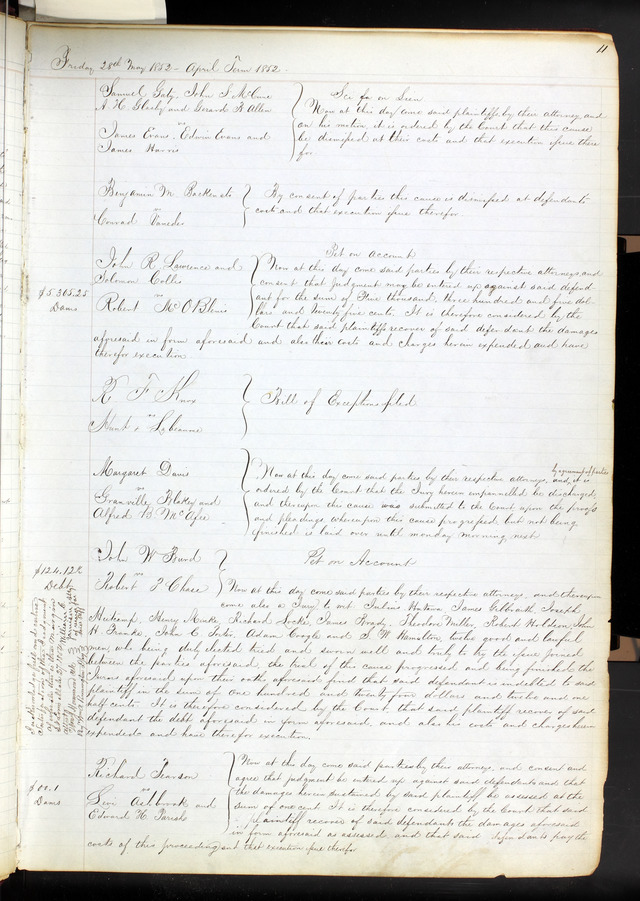 11
Friday 28th May 1852 - April Term 1852.
Samuel Gaty, John S. McCune
A. H. Glasby and Gerard B. Allen
vs
James Evans, Edwin Evans and
James Harris
Sci fa on Lien
Now at this day come said plaintiffs, by their attorney, and
on his motion, it is ordered by the Court that this cause
be dismissed at their costs and that execution issue there
for.
Benjamin M.
vs
Conrad
By consent of parties this cause is dismissed at defendants
costs and that execution issue therefor
$5.305.25
Dams
John R. Lawrence and
Solomon
vs
Robert
Pet on Account
Now at this day come said parties by their respective attorneys, and
consent that Judgment may be entered up against said defend
ant for the sum of Five thousand, three hundred and five dol-
lars and twenty five cents. It is therefore considered by the
Court that said plaintiffs recover of said defendant the damages
aforesaid in form aforesaid and also their costs and charges herein expended and have
therefor execution
R. F. Knox
vs
Hunt &
Bill of Exceptions filed
Margaret Davis
vs
Granville Blakey and
Alfred B. McAfee
by agreement of parties
Now at this day come said parties by their respective attorneys, and, it is
ordered by the Court that the Jury herein empannelled be discharged,
and thereupon the cause was submitted to the Court upon the proofs
and pleadings, whereupon this cause progressed but not being
finished is laid over until monday morning next.
$124.12½
Debt
John W Burd
vs
Robert P Chase
Pet on Account
Now at this day come said parties by their respective attorneys. and thereupon
come also a Jury to wit Julius Hutawa James Gilbraith, Joseph
Heitcamp, Henry Menke, Richard Locke, James Brady, Theodore Miller, Robert Holdson, John
H. Franke, John C. Suter, Adam and S. W. Hamilton, twelve good and lawful
men who being duly elected tried and sworn well and truly to try the issue joined
between the parties aforesaid, the trial of the cause progressed and being finished the
Jurors aforesaid upon their oaths aforesaid find that said defendant is indebted to said
plaintiff in the sum of one hundred and twenty four dollars and twelve and one
half cents. It is therefore considered by the Court, that said plaintiff recover of said
defendant the debt aforesaid in form aforesaid, and also his costs and charges herein
expended and have therefor execution.
$00.1
Dams
Richard Pearson
vs
Levi Ashbrook and
Edward H. Parish
Now at this day come said parties by their attorneys, and consent and
agree that judgment be entered up against said defendants and that
the damages herein sustained by said plaintiff be assessed at the
sum of one cent. It is therefore considered by the Court that said
plaintiff recover of said defendants the damages aforesaid
in form aforesaid as assessed and that said defendants pay the
costs of this proceeding and that execution issue therefor